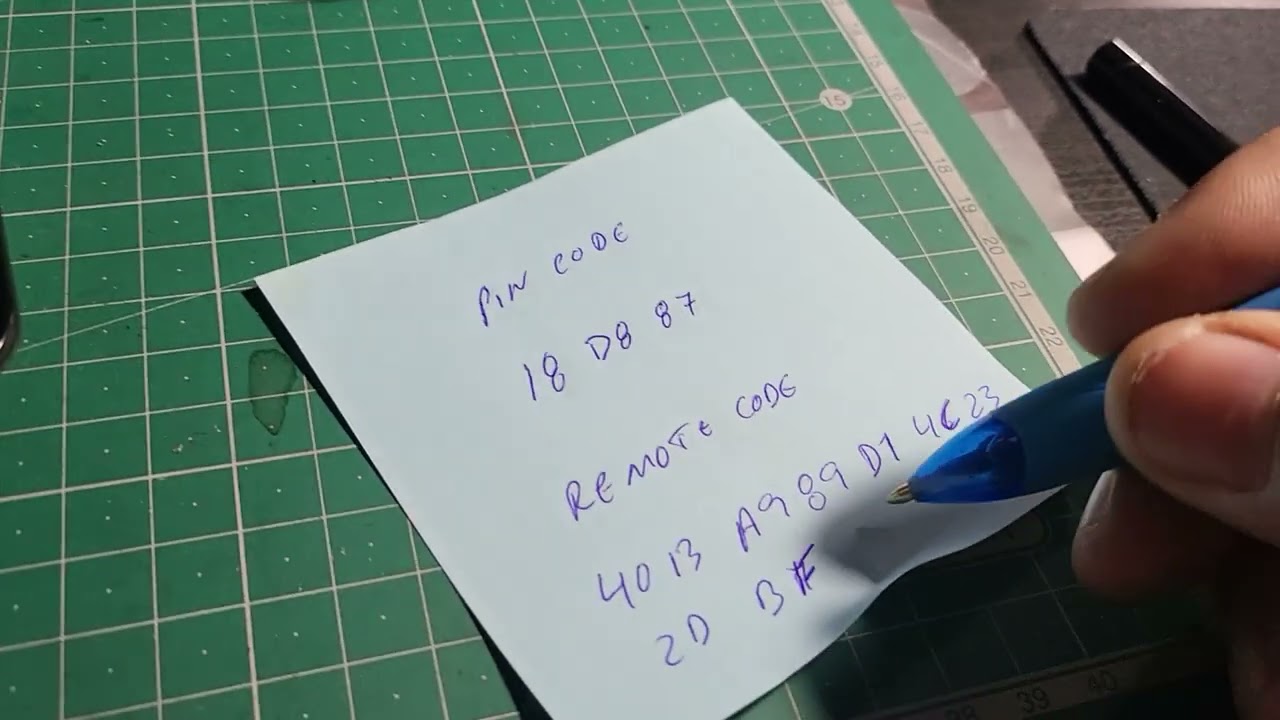 PIN CODE
18 D8 87
REMOTE CODE
40 13 A9 89 D1 4C 23
2D BF
15
16
17
18
19
20
21
22
39
40